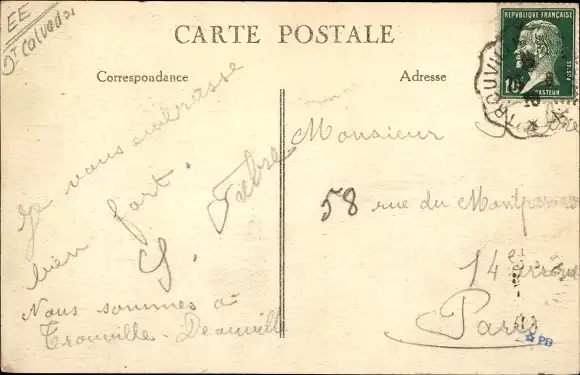 EE
Calvados
CARTE POSTALE
Correspondance
Adresse
REPUBLIQUE FRANÇAISE
POSTES
PASTEUR
TROUVILLE
Je vous embrasse
bien fort.
Monsieur
58 rue du
14e
Paris
Nous sommes à
Trouville-Deauville
PB